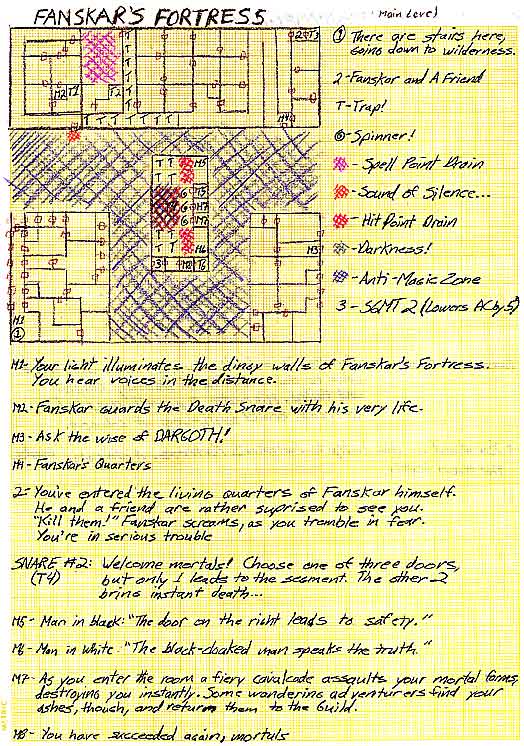 FANSKAR'S FORTRESS
Main Level
① There are stairs here,
going down to wilderness.
2-Fanskar and A Friend
T-Trap!
Ⓢ-Spinner!
- Spell Point Drain
- Sound of Silence...
- Hit Point Drain
- Darkness!
- Anti-Magic Zone
3 - SGMT 2 (Lowers AC by 5)
M1- Your light illuminates the dingy walls of Fanskar's Fortress.
You hear voices in the distance.
M2- Fanskar guards the Death Snare with his very life.
M3- Ask the wise of DARGOTH!
M4- Fanskar's Quarters
2- You've entered the living quarters of Fanskar himself.
He and a friend are rather suprised to see you.
"Kill them!" Fanskar screams, as you tremble in fear.
You're in serious trouble
SNARE #2: Welcome mortals! Choose one of three doors,
(T4) but only 1 leads to the segment. The other 2
bring instant death...
M5- Man in black: "The door on the right leads to safety."
M6- Man in white: "The black-cloaked man speaks the truth."
M7- As you enter the room a fiery cavalcade assaults your mortal forms,
destroying you instantly. Some wandering adventurers find your
ashes, though, and return them to the Guild.
M8- You have succeeded again, mortals